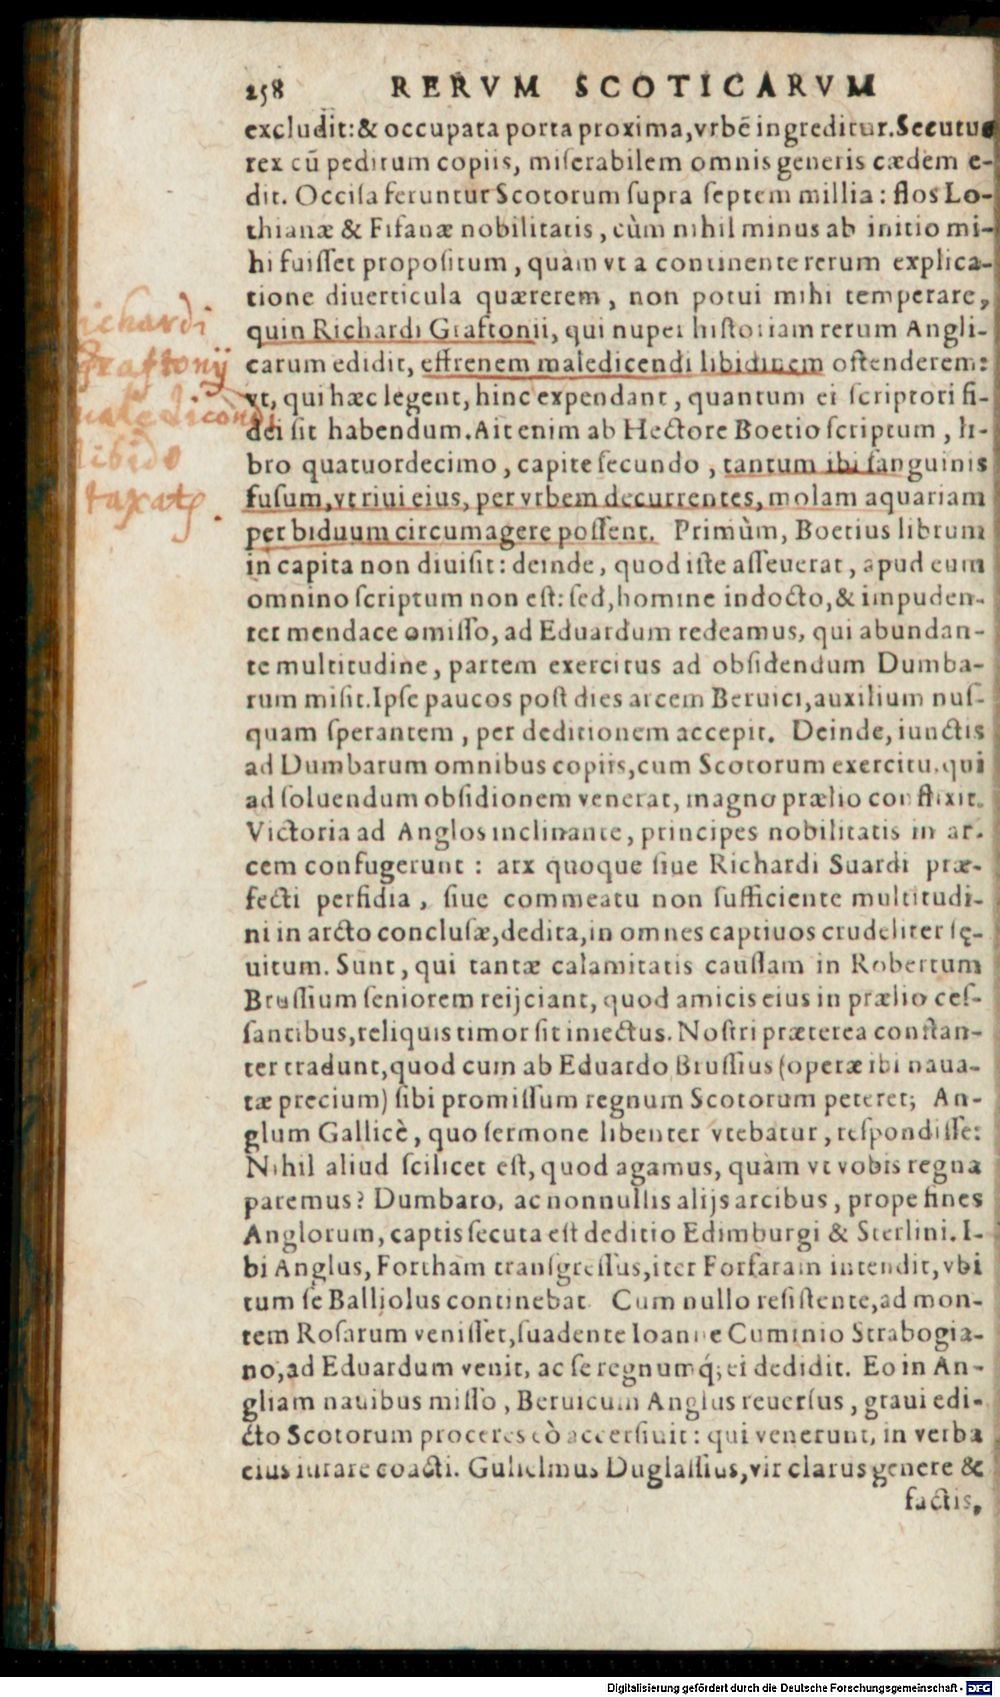 258 RERVM SCOTICARVM
excludit:& occupata porta proxima,vrbē ingreditur.Secutus
rex cū peditum copiis, miſerabilem omnis generis cædem e-
dit. Occiſa feruntur Scotorum ſupra ſeptem millia : flos Lo-
thianæ & Fifanæ nobilitatis , cùm nihil minus ab initio mi-
hi fuiſſet propoſitum , quàm vt a continente rerum explica-
tione diuerticula quærerem , non potui mihi temperare,
quin Richardi Graftonii, qui nuper hiſtoriam rerum Angli-
carum edidit, effrenem maledicendi libidinem oſtenderem:
vt, qui hæc legent, hinc expendant , quantum ei ſcriptori fi-
dei ſit habendum. Ait enim ab Hectore Boetio ſcriptum , li-
bro quatuordecimo , capite ſecundo , tantum ibi ſanguinis
fuſum, vt riui eius, per vrbem decurrentes, molam aquariam
per biduum circumagere poſſent. Primùm, Boetius librum
in capita non diuiſit: deinde, quod iſte aſſeuerat, apud eum
omnino ſcriptum non eſt: ſed, homine indocto, & impuden-
ter mendace omiſſo, ad Eduardum redeamus, qui abundan-
te multitudine, partem exercitus ad obſidendum Dumba-
rum miſit. Ipſe paucos poſt dies arcem Beruici, auxilium nuſ-
quam ſperantem , per deditionem accepit. Deinde, iunctis
ad Dumbarum omnibus copiis, cum Scotorum exercitu, qui
ad ſoluendum obſidionem venerat, magno prælio conflixit.
Victoria ad Anglos inclinante, principes nobilitatis in ar-
cem confugerunt : arx quoque ſiue Richardi Suardi præ-
fecti perfidia , ſiue commeatu non ſufficiente multitudi-
ni in arcto concluſæ, dedita, in omnes captiuos crudeliter ſę-
uitum. Sunt, qui tantæ calamitatis cauſſam in Robertum
Bruſſium ſeniorem reijciant, quod amicis eius in prælio ceſ-
ſantibus, reliquis timor ſit iniectus. Noſtri præterea conſtan-
ter tradunt, quod cum ab Eduardo Bruſſius (operæ ibi naua-
tæ precium) ſibi promiſſum regnum Scotorum peteret; An-
glum Gallicè , quo ſermone libenter vtebatur , reſpondiſſe:
Nihil aliud ſcilicet eſt, quod agamus, quàm vt vobis regna
paremus? Dumbaro, ac nonnullis alijs arcibus , prope fines
Anglorum, captis ſecuta eſt deditio Edimburgi & Sterlini. I-
bi Anglus, Fortham tranſgreſſus, iter Forfaram intendit, vbi
tum ſe Balliolus continebat. Cum nullo reſiſtente, ad mon-
tem Roſarum veniſſet, ſuadente Ioanne Cuminio Strabogia-
no, ad Eduardum venit, ac ſe regnumq́; ei dedidit. Eo in An-
gliam nauibus miſſo , Beruicum Anglus reuerſus , graui edi-
cto Scotorum proceres eò accerſiuit : qui venerunt, in verba
eius iurare coacti. Gulielmus Duglaſſius, vir clarus genere &
factis,
ichardi
Graftonij
maledicendi
libido
taxatȩ.
Digitalisierung gefördert durch die Deutsche Forschungsgemeinschaft - DFG